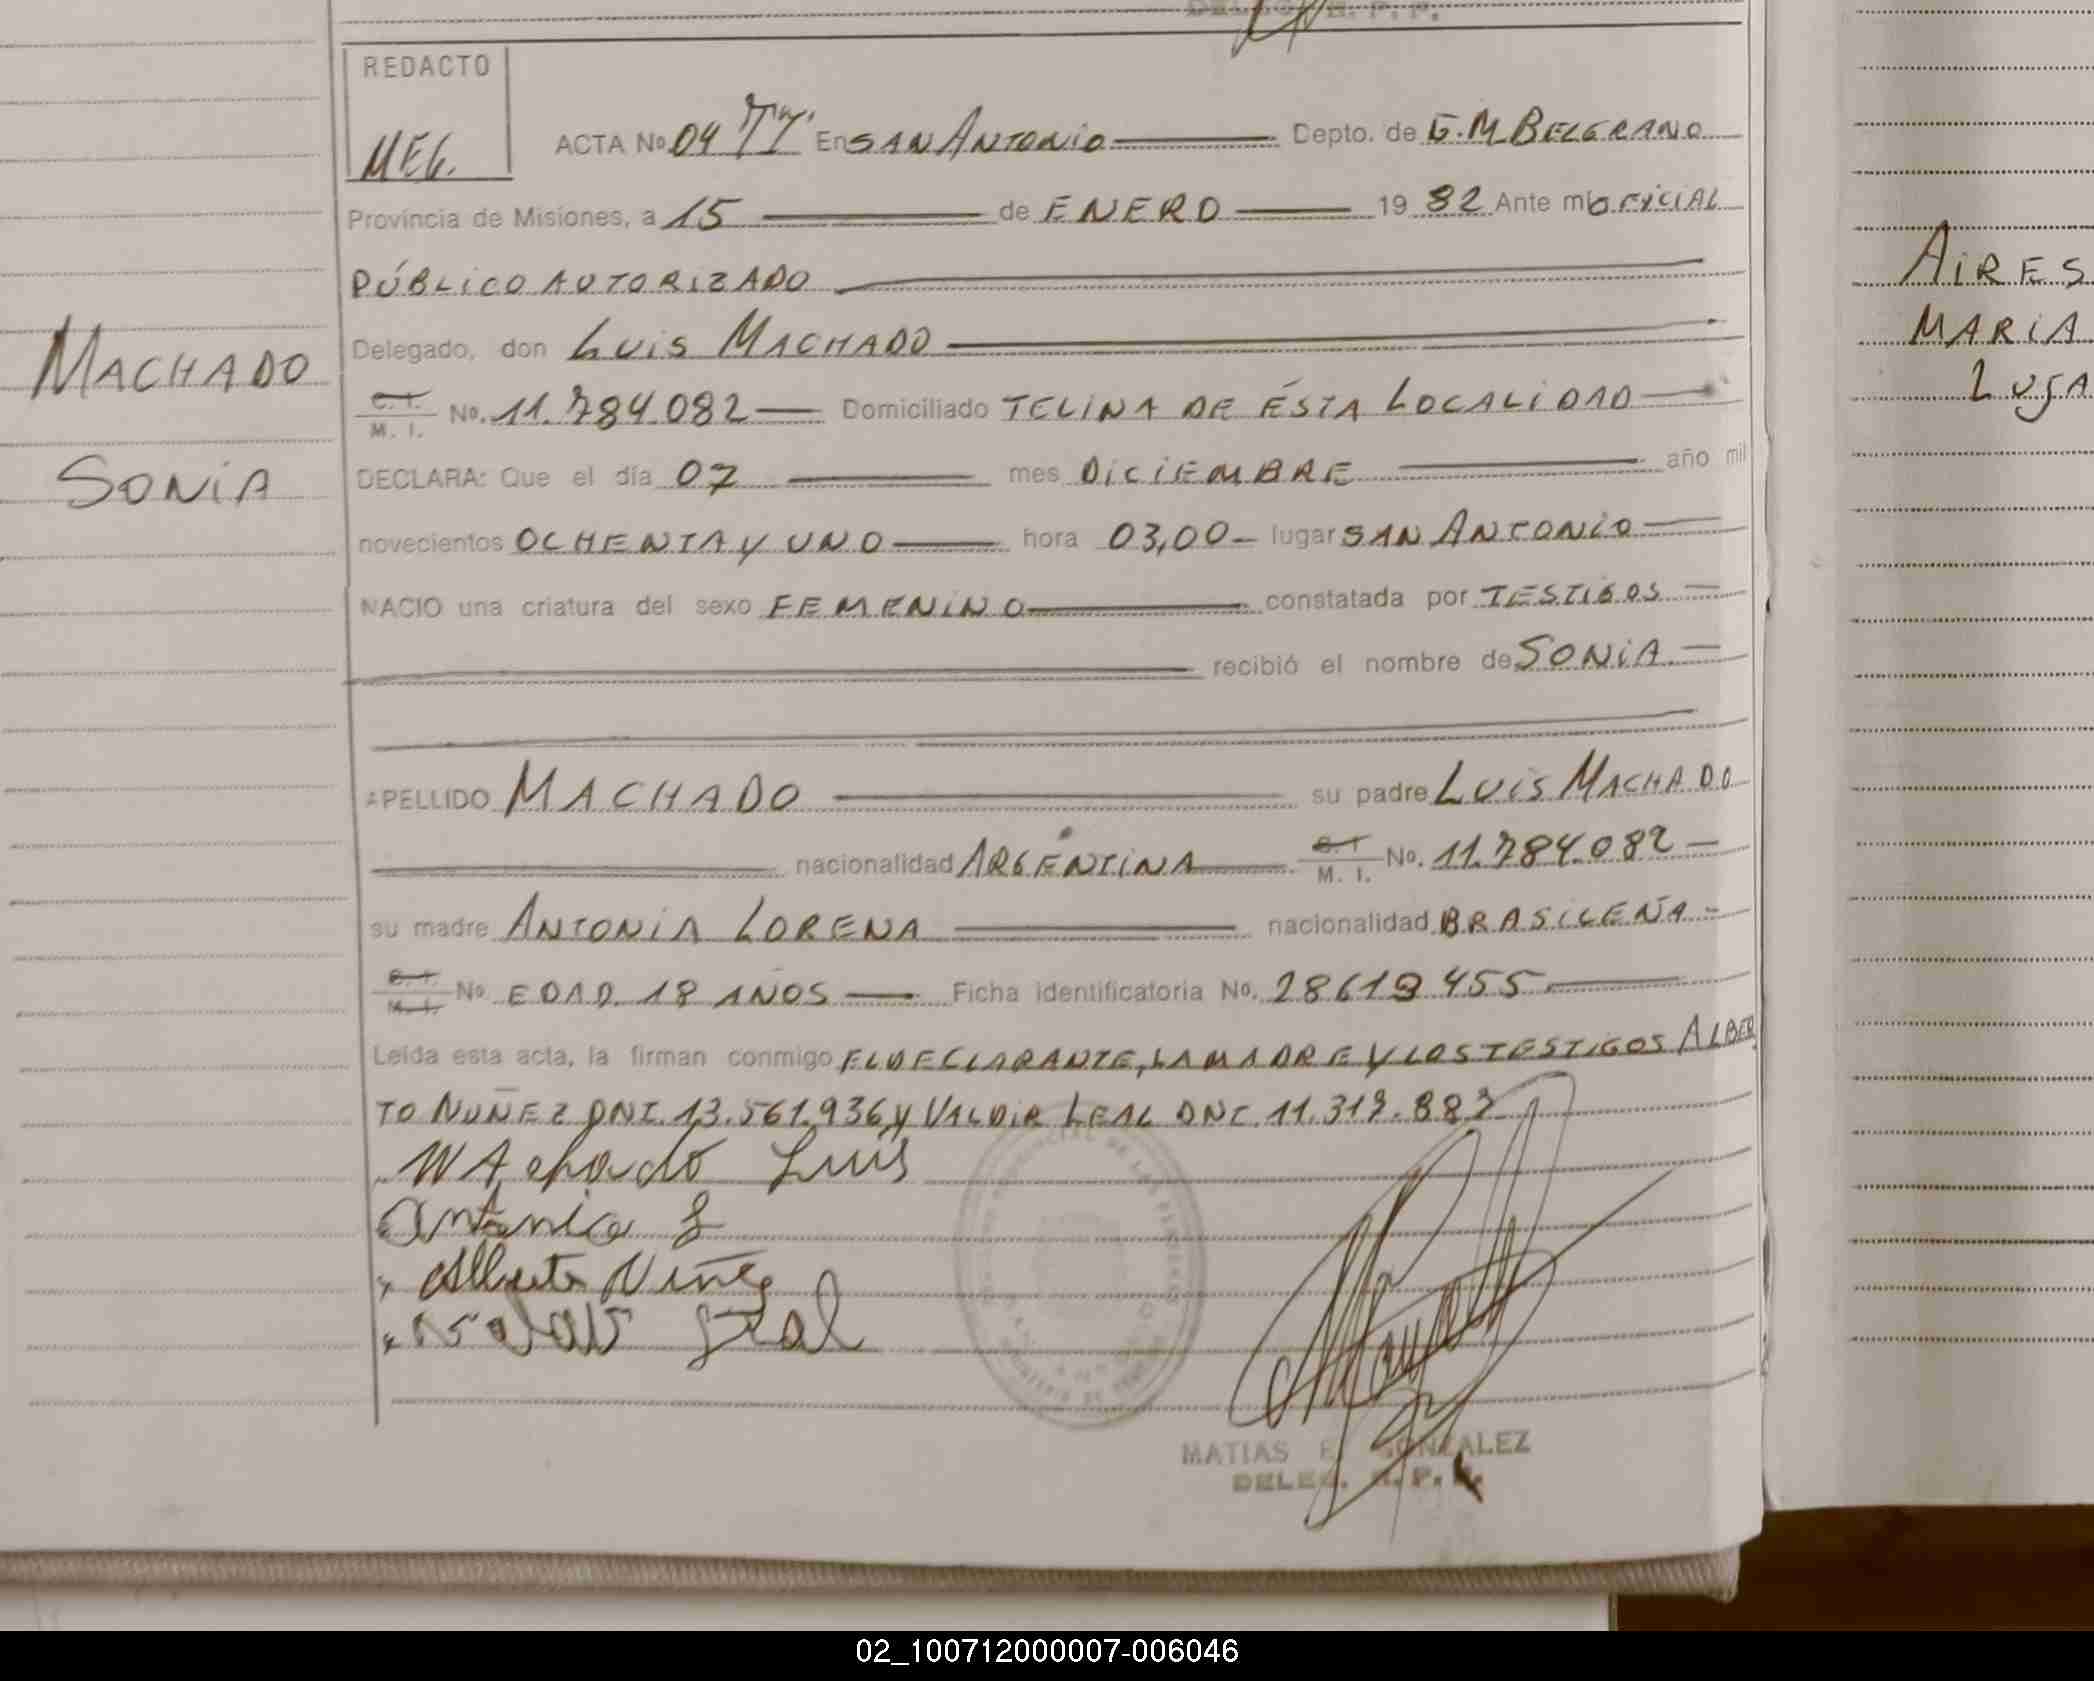 REDACTO
MEG.
ACTA No 04 TY. En SAN ANTONIO Depto. de G.M BELGRANO
Provincia de Misiones, a 15 de ENERO 19 82 Ante mi OFICIAL
PÚBLICO AUTORIZADO
Delegado, don LUIS MACHADO
C. I. M. I. No. 11.784.082 Domiciliado TELINA DE ÉSTA LOCALIDAD
MACHADO
SONIA
DECLARA: Que el día 07 mes DICIEMBRE año mil
novecientos OCHENTA Y UNO hora 03,00 lugar SAN ANTONIO
NACIO una criatura del sexo FEMENINO constatada por TESTIGOS
recibió el nombre de SONIA
APELLIDO MACHADO su padre LUIS MACHADO
nacionalidad ARGENTINA C. I. M. I. No. 11.784.082
su madre ANTONIA LORENA nacionalidad BRASILEÑA
C. I. M. I. No EDAD 18 AÑOS Ficha identificatoria No. 28619455
Leída esta acta, la firman conmigo EL DECLARANTE, LA MADRE Y LOS TESTIGOS ALBER
TO NUÑEZ DNI. 13.561.936 y VALDIR LEAL DNI. 11.317.887
Machado Luis
Antonia L
Alberto Nuñez
Leal
MATIAS GONZALEZ
DELEG. R. P.
AIRES
MARIA
LUJA
02_100712000007-006046